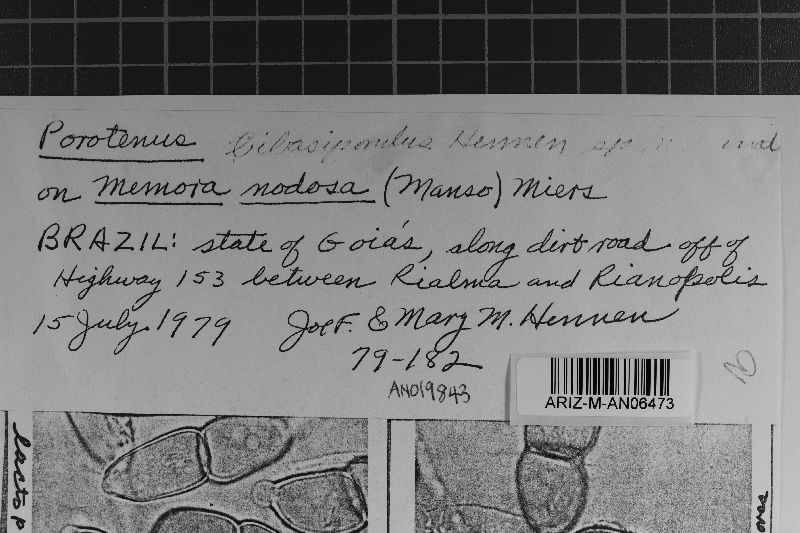 Porotenus bibasiporulus Hennen sp.
on Memora nodosa (Manso) Miers
BRAZIL: state of Goiás, along dirt road off of
Highway 153 between Rialma and Rianopolis
15 July 1979 Joe F. & Mary M. Hennen
79-182
AN019843
ARIZ-M-AN06473